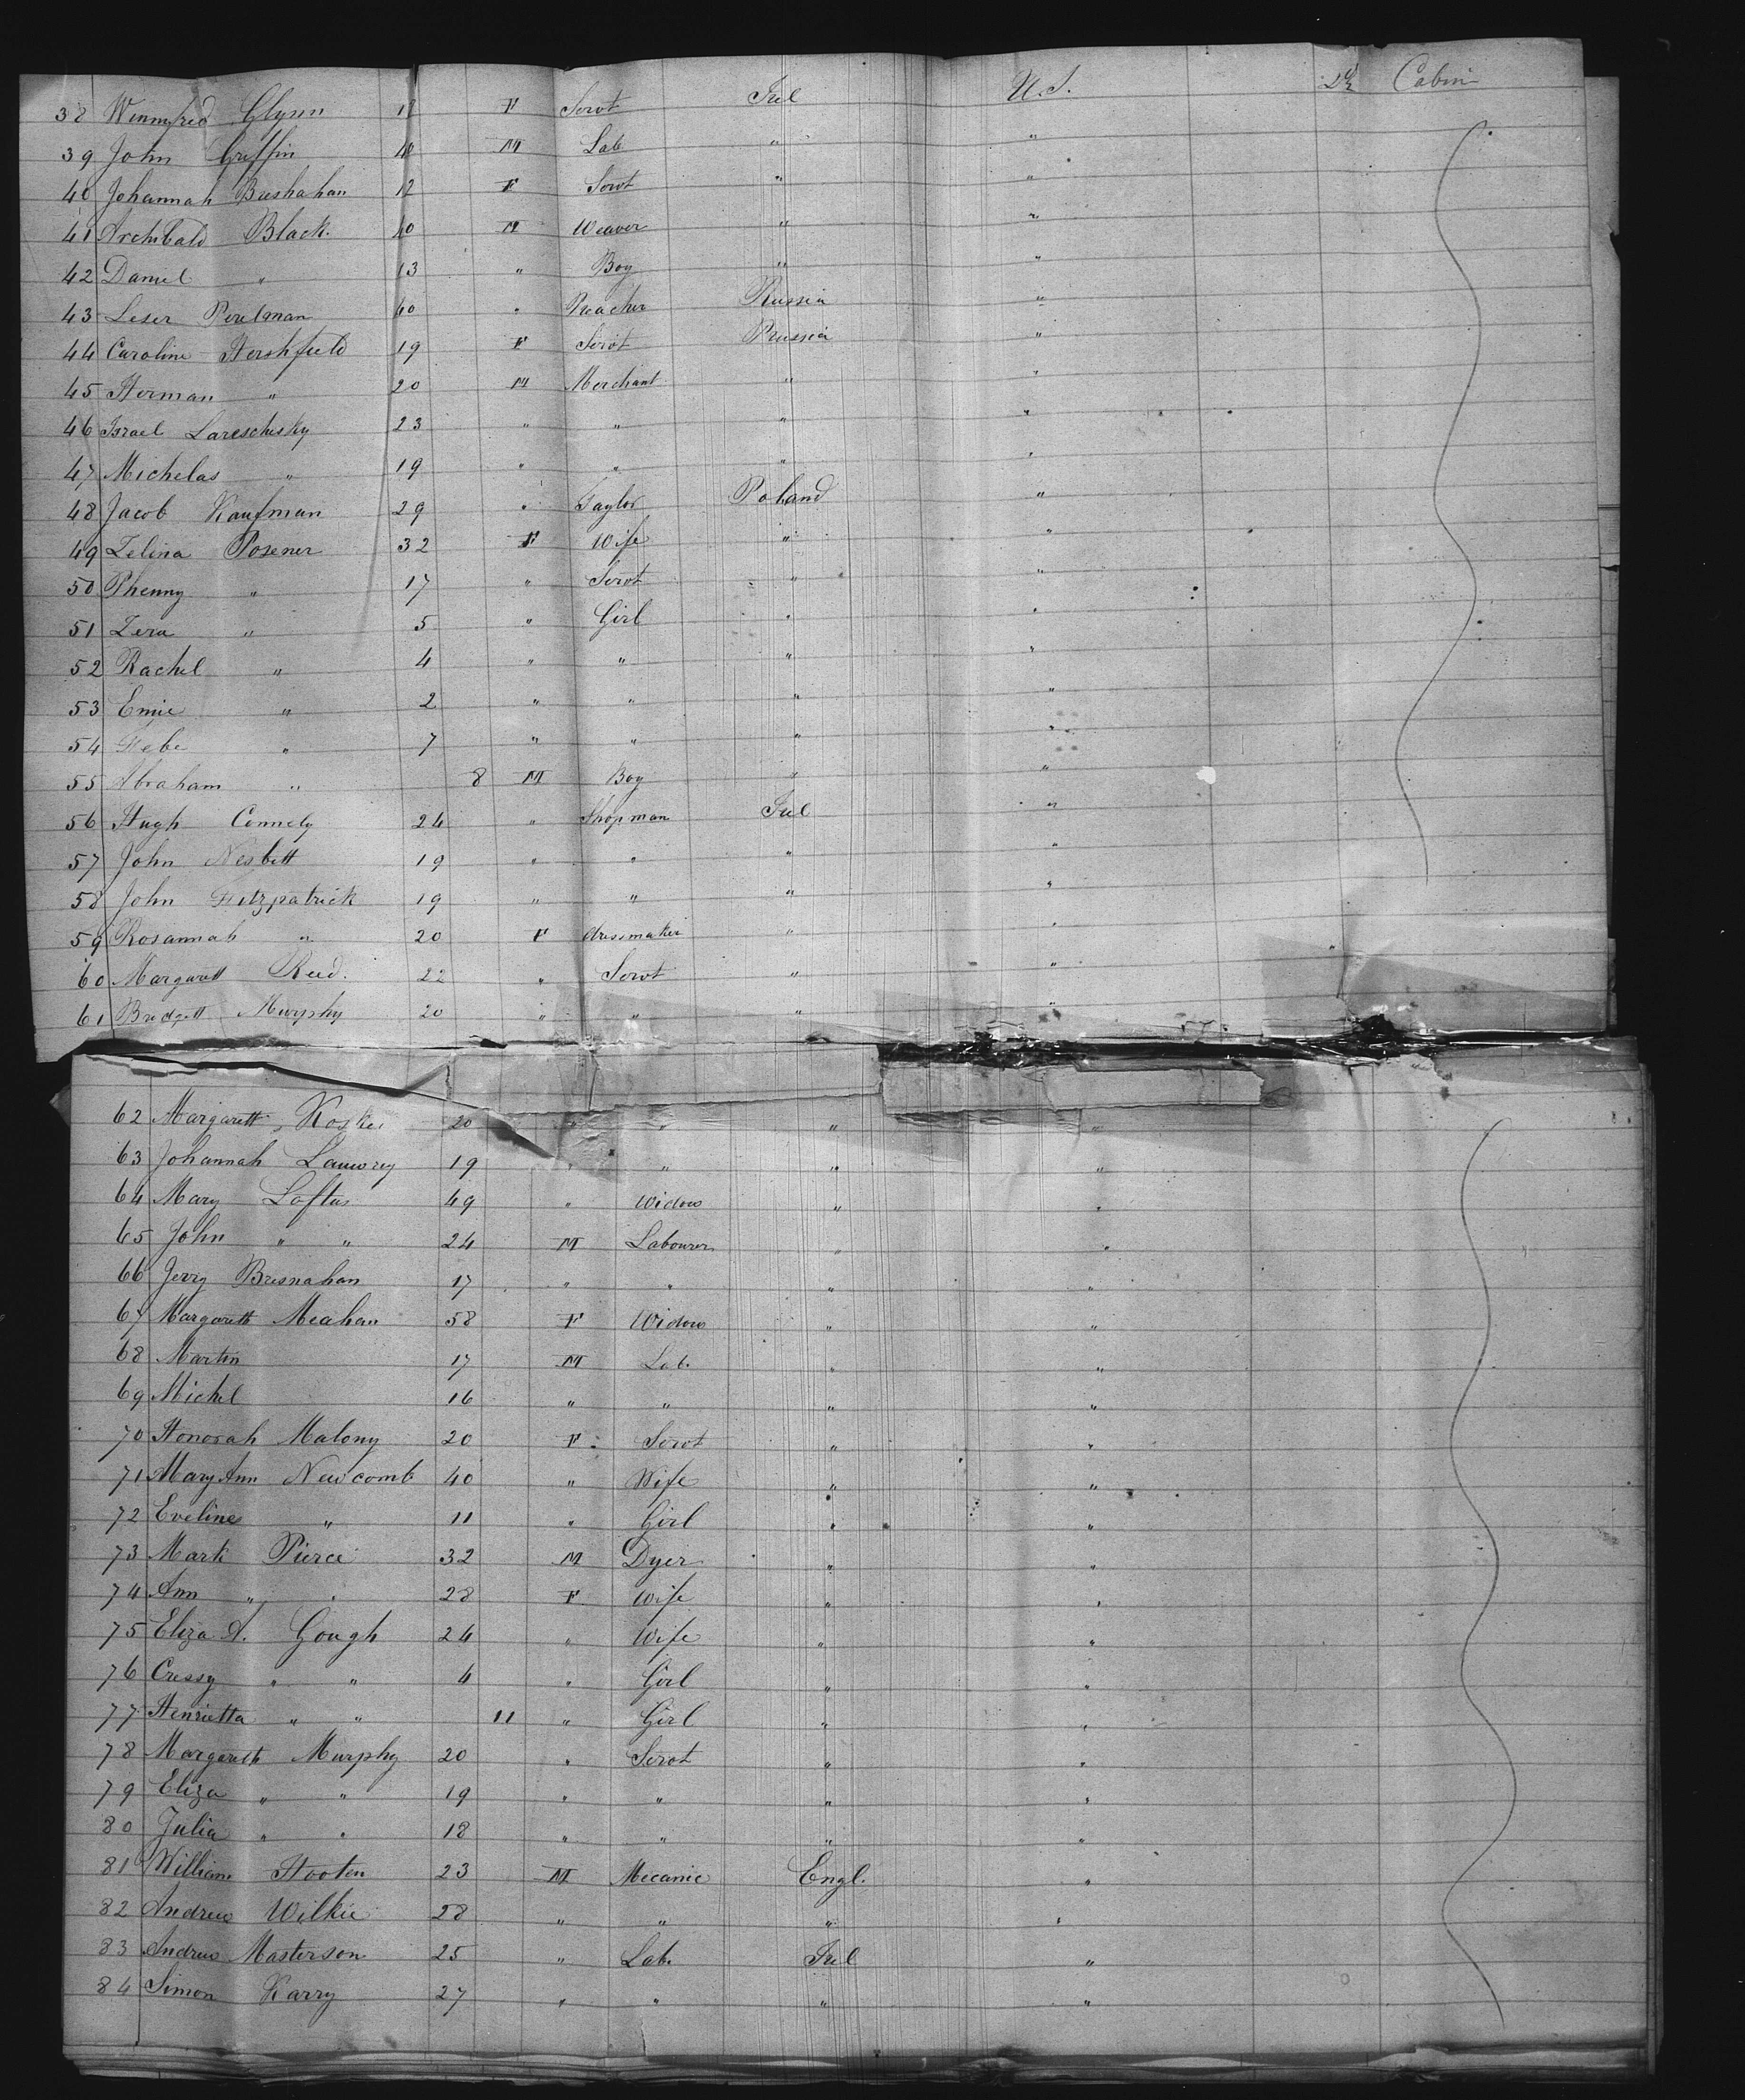 38 Winnyfred Glynn 18 F Servt Irel U.S. 2d Cabin
39 John Griffin 40 M Lab " "
40 Johannah 12 F Servt " "
41 Archibald Black 40 M Weaver " "
42 Daniel " 13 " Boy " "
43 Leser Perelman 40 " Preacher Russia "
44 Caroline Hershfield 19 F Servt Prussia "
45 Herman " 20 M Merchant " "
46 Israel Lareschisky 23 " " " "
47 Michelas " 19 " " " "
48 Jacob Kaufman 29 " Taylor Poland "
49 Zelina Posener 32 F Wife " "
50 Phenny " 17 " Servt " "
51 Zera " 5 " Girl " "
52 Rachel " 4 " " " "
53 Emie " 2 " " " "
54 Febe " 7 " " " "
55 Abraham " 8 M Boy " "
56 Hugh Connely 24 " Shopman Irel "
57 John Nesbett 19 " " " "
58 John Fitzpatrick 19 " " " "
59 Rosannah " 20 F dressmaker " "
60 Margarett Reed. 22 " Servt " "
61 Bridgett Murphy 20 " " " "
62 Margarett 20 " " " "
63 Johannah 19 " " " "
64 Mary Loftus 49 " Widow " "
65 John " " 24 M Labourer " "
66 Jerry Bresnahan 17 " " " "
67 Margareth Meahan 58 F Widow " "
68 Martin 17 M Lab. " "
69 Michel 16 " " " "
70 Honorah Malony 20 F Servt " "
71 Mary Ann Newcomb 40 " Wife " "
72 Eveline " 11 " Girl " "
73 Mark Pierce 32 M Dyer " "
74 Ann " " 28 F Wife " "
75 Eliza A. Gough 24 " Wife " "
76 Cressy " " 4 " Girl " "
77 Henrietta " " 11 " Girl " "
78 Margareth Murphy 20 " Servt " "
79 Eliza " " 19 " " " "
80 Julia " " 18 " " " "
81 William Hooten 23 M Mecanic Engl. "
82 Andrew Wilkie 28 " " " "
83 Andrew Masterson 25 " Lab. Irel "
84 Simon Karry 27 " " " "